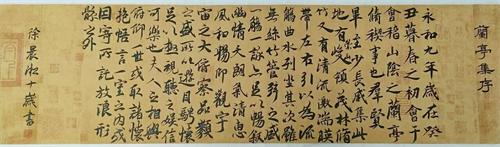 蘭亭集序
永和九年歲在癸
丑暮春之初會于
會稽山陰之蘭亭
脩禊事也羣賢
畢至少長咸集此
地有崇領茂林脩
竹又有清流激湍映
帶左右引以為流
觴曲水列坐其次雖
無絲竹管弦之盛
一觴一詠亦足以暢叙
幽情天朗氣清惠
風和暢仰觀宇
宙之大俯察品類
之盛所以遊目騁懷
足以極視聽之娛信
可樂也夫人之相與
俯仰一世或取諸懷
抱悟言一室之內或
因寄所託放浪形
骸之外
徐晨淑十歲書